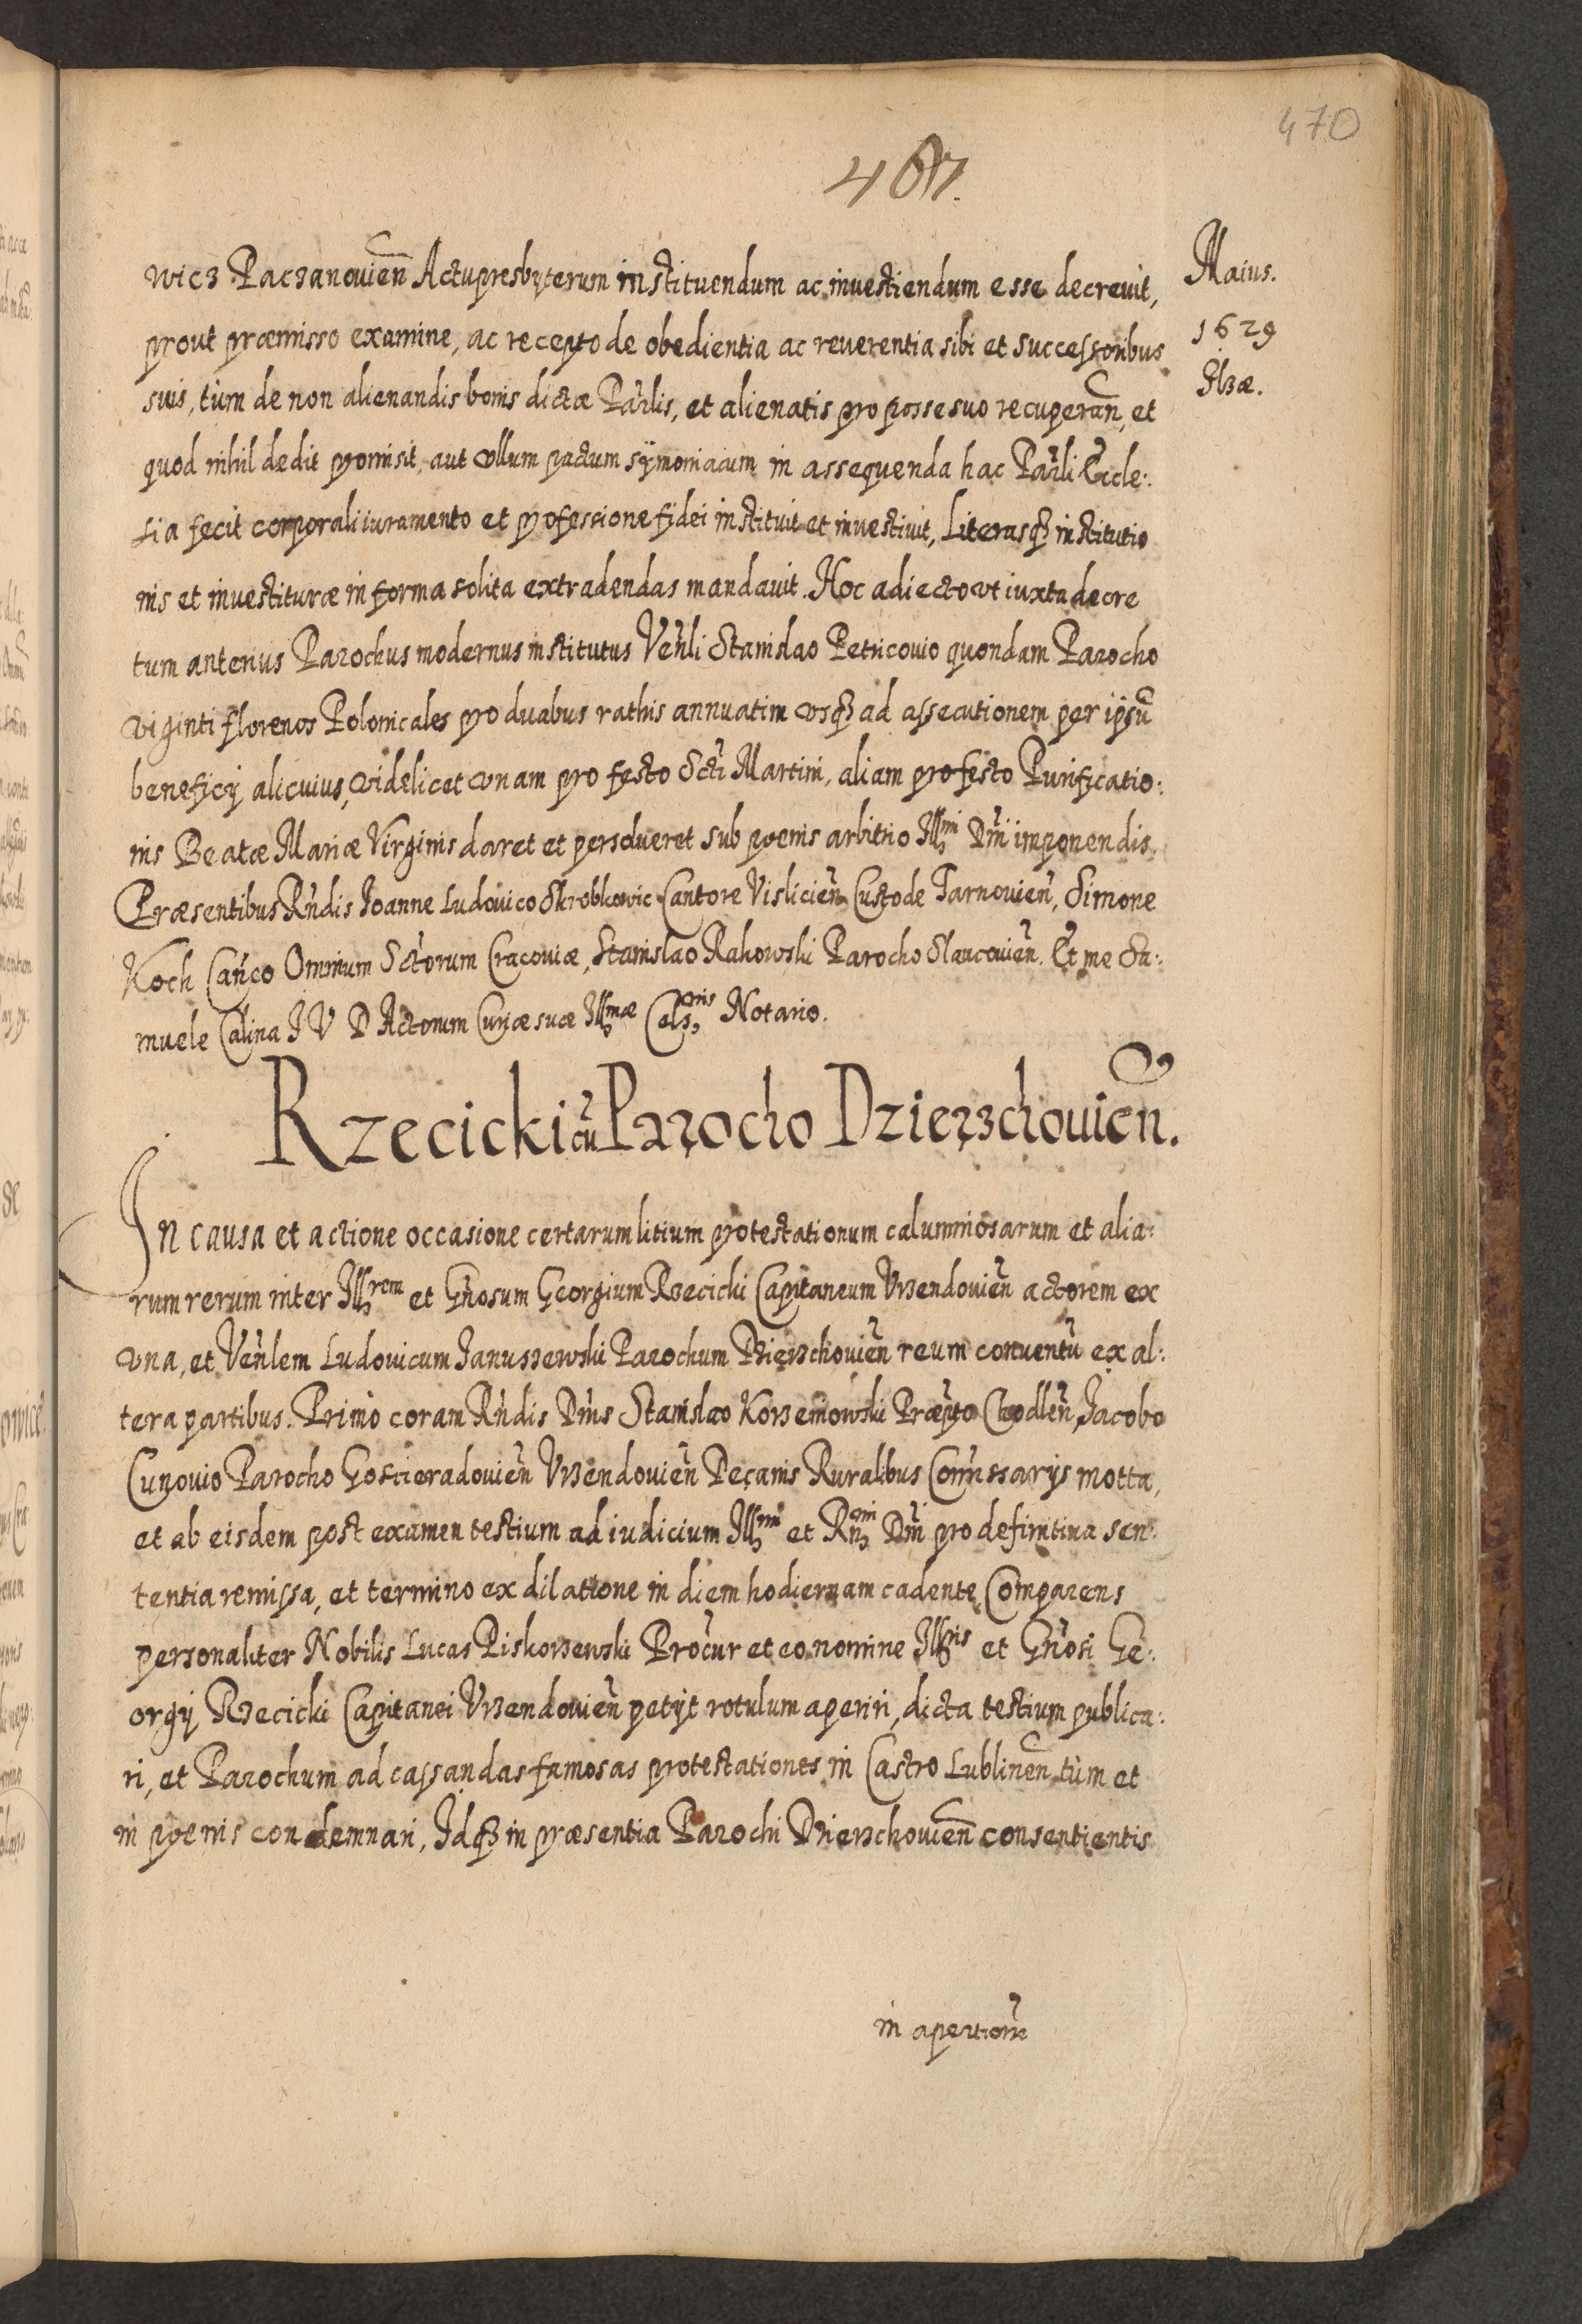 470
467.
Maius.
1629
Ilzæ.
wicz Paczanovien̄ Actupresbyterum instituendum ac investiendum esse decrevit,
prout præmisso examine, ac recepto de obedientia ac reverentia sibi et successoribus
suis, tùm de non alienandis bonis dictæ Par̃lis, et alienatis pro posse suo recuperan̄, et
quod nihil dedit promisit, aut vllum pactum sÿmoniacum in assequenda hac Par̃li Eccle:
sia fecit corporali iuramento et professione fidei instituit et investivit, Literasq̃ institutio
nis et investituræ in forma solita extradendas mandavit. Hoc adiecto vt iuxta decre
tum anterius Parochus modernus institutus Veñli Stanislao Petricovio quondam Parocho
viginti florenos Polonicales pro duabus rathis annuatim vsq̃ ad assecutionem per ipsũ
beneficij alicuius, videlicet vnam pro festo Scti Martini, aliam pro festo Purificatio:
nis Beatæ Mariæ Virginis daret et persolveret sub poenis arbitrio Illmi Dñi imponendis.
Præsentibus Rñdis Joanne Ludovico Skrobkowic Cantore Vislicieñ Custode Tarnovieñ, Simone
Koch Cañco Omnium Sctorum Cracoviæ, Stanislao Rakowski Parocho Slavcovieñ. Et me Sa:
muele Calina J V D Actorum Curiæ suæ Illmæ Celsnis Notario.
Rzecicki cũ Parocho Dzierzchovien̄.
In causa et actione occasione certarum litium protestationum calumniosarum et alia:
rum rerum inter Illrem et Gñosum Georgium Rzecicki Capitaneum Vrzendovieñ actorem ex
vna, et Veñlem Ludovicum Janussewski Parochum Dzierzchovieñ reum conventũ ex al:
tera partibus. Primò coram Rñdis Dñis Stanislao Korzeniowski Præpto Chodleñ, Jacobo
Cunovio Parocho Goscieradovieñ Vrzendovieñ Decanis Ruralibus Com̃issarijs motta,
et ab eisdem post examen testium ad iudicium Illmi et Rnmi Dñi pro definitiva sen:
tentia remissa, et termino ex dilatione in diem hodiernam cadente, Comparens
personaliter Nobilis Lucas Piskorzewski Procur et eo nomine Illris et Gñosi Ge:
orgij Rzecicki Capitanei Vrzendovieñ petijt rotulum aperiri, dicta testium publica:
ri, et Parochum ad cassandas famosas protestationes in Castro Lublinen̄ tùm et
in poenis condemnari, Idq̃ in præsentia Parochi Dzierzchovien̄ consentientis
in apertionẽ